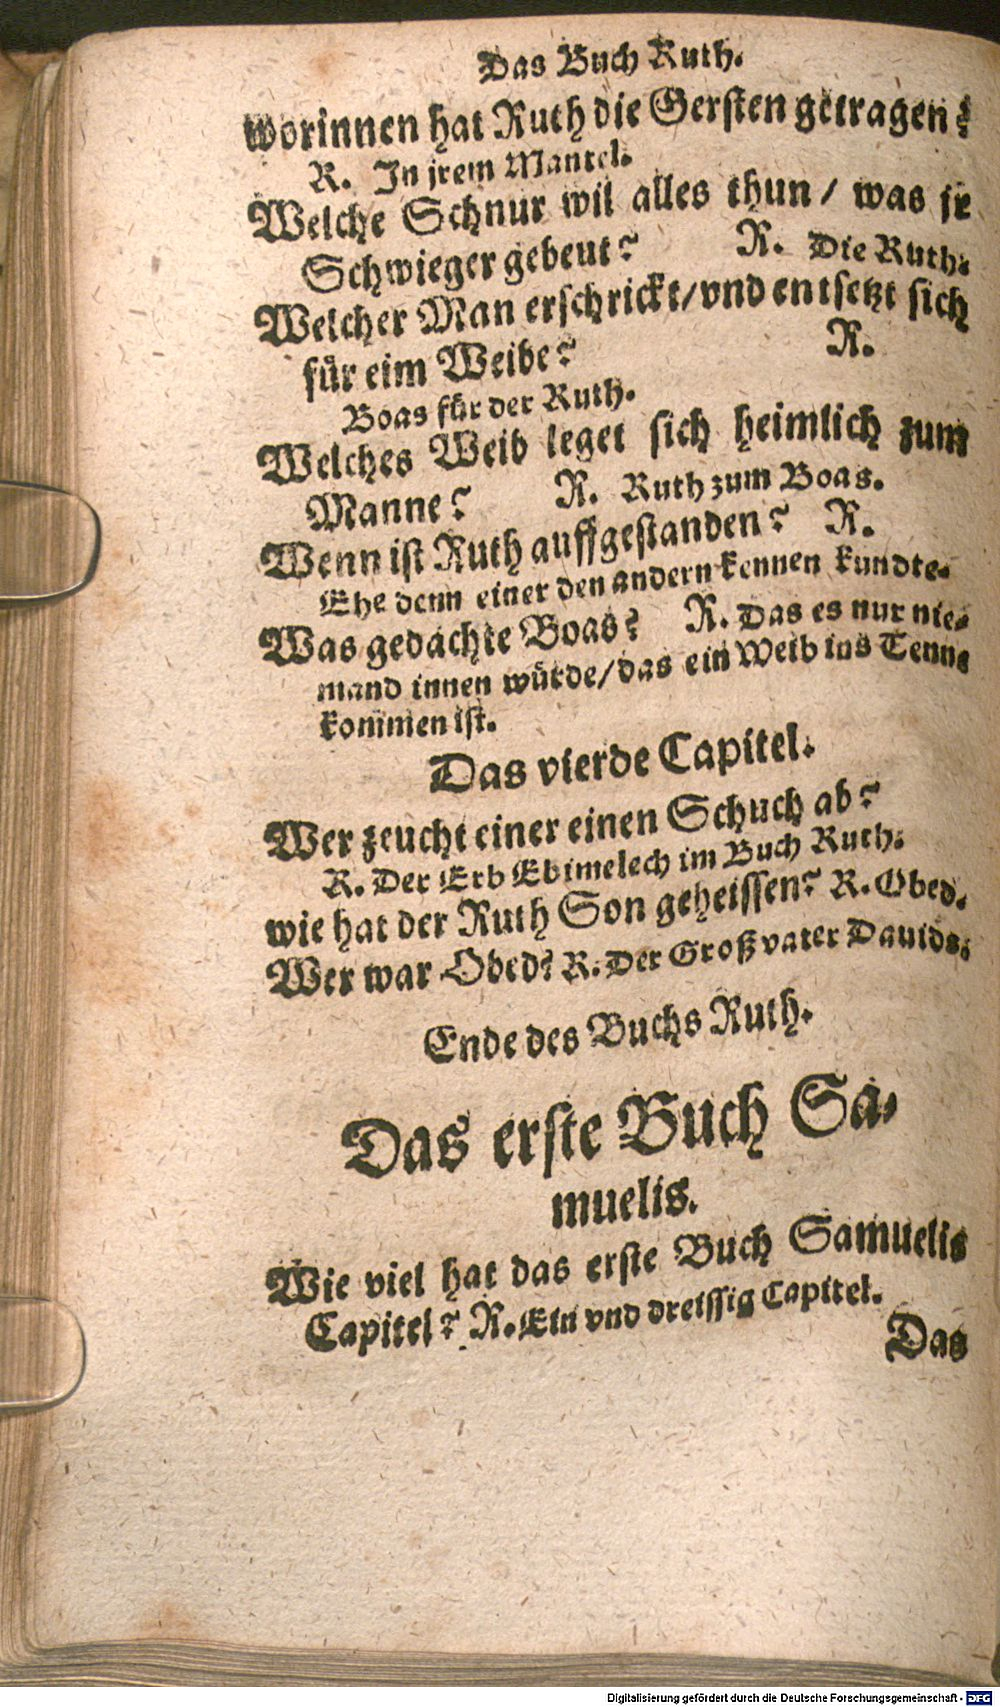 Das Buch Ruth.
worinnen hat Ruth die Gersten getragen?
R. In jrem Mantel.
Welche Schnur wil alles thun / was jr
Schwieger gebeut? R. Die Ruth.
Welcher Man erschrickt/vnd entsetzt sich
für eim Weibe? R.
Boas für der Ruth.
Welches Weib leget sich heimlich zum
Manne? R. Ruth zum Boas.
Wenn ist Ruth auffgestanden? R.
Ehe denn einer den andern kennen kundte.
Was gedachte Boas? R. Das es nur nie-
mand innen würde/das ein Weib ins Tenne
kommen ist.
Das vierde Capitel.
Wer zeucht einer einen Schuch ab?
R. Der Erb Ebimelech im Buch Ruth.
wie hat der Ruth Son geheissen? R. Obed.
Wer war Obed? R. Der Großvater Dauids.
Ende des Buchs Ruth.
Das erste Buch Sa-
muelis.
Wie viel hat das erste Buch Samuelis
Capitel? R. Ein vnd dreissig Capitel.
Das
Digitalisierung gefördert durch die Deutsche Forschungsgemeinschaft - DFG